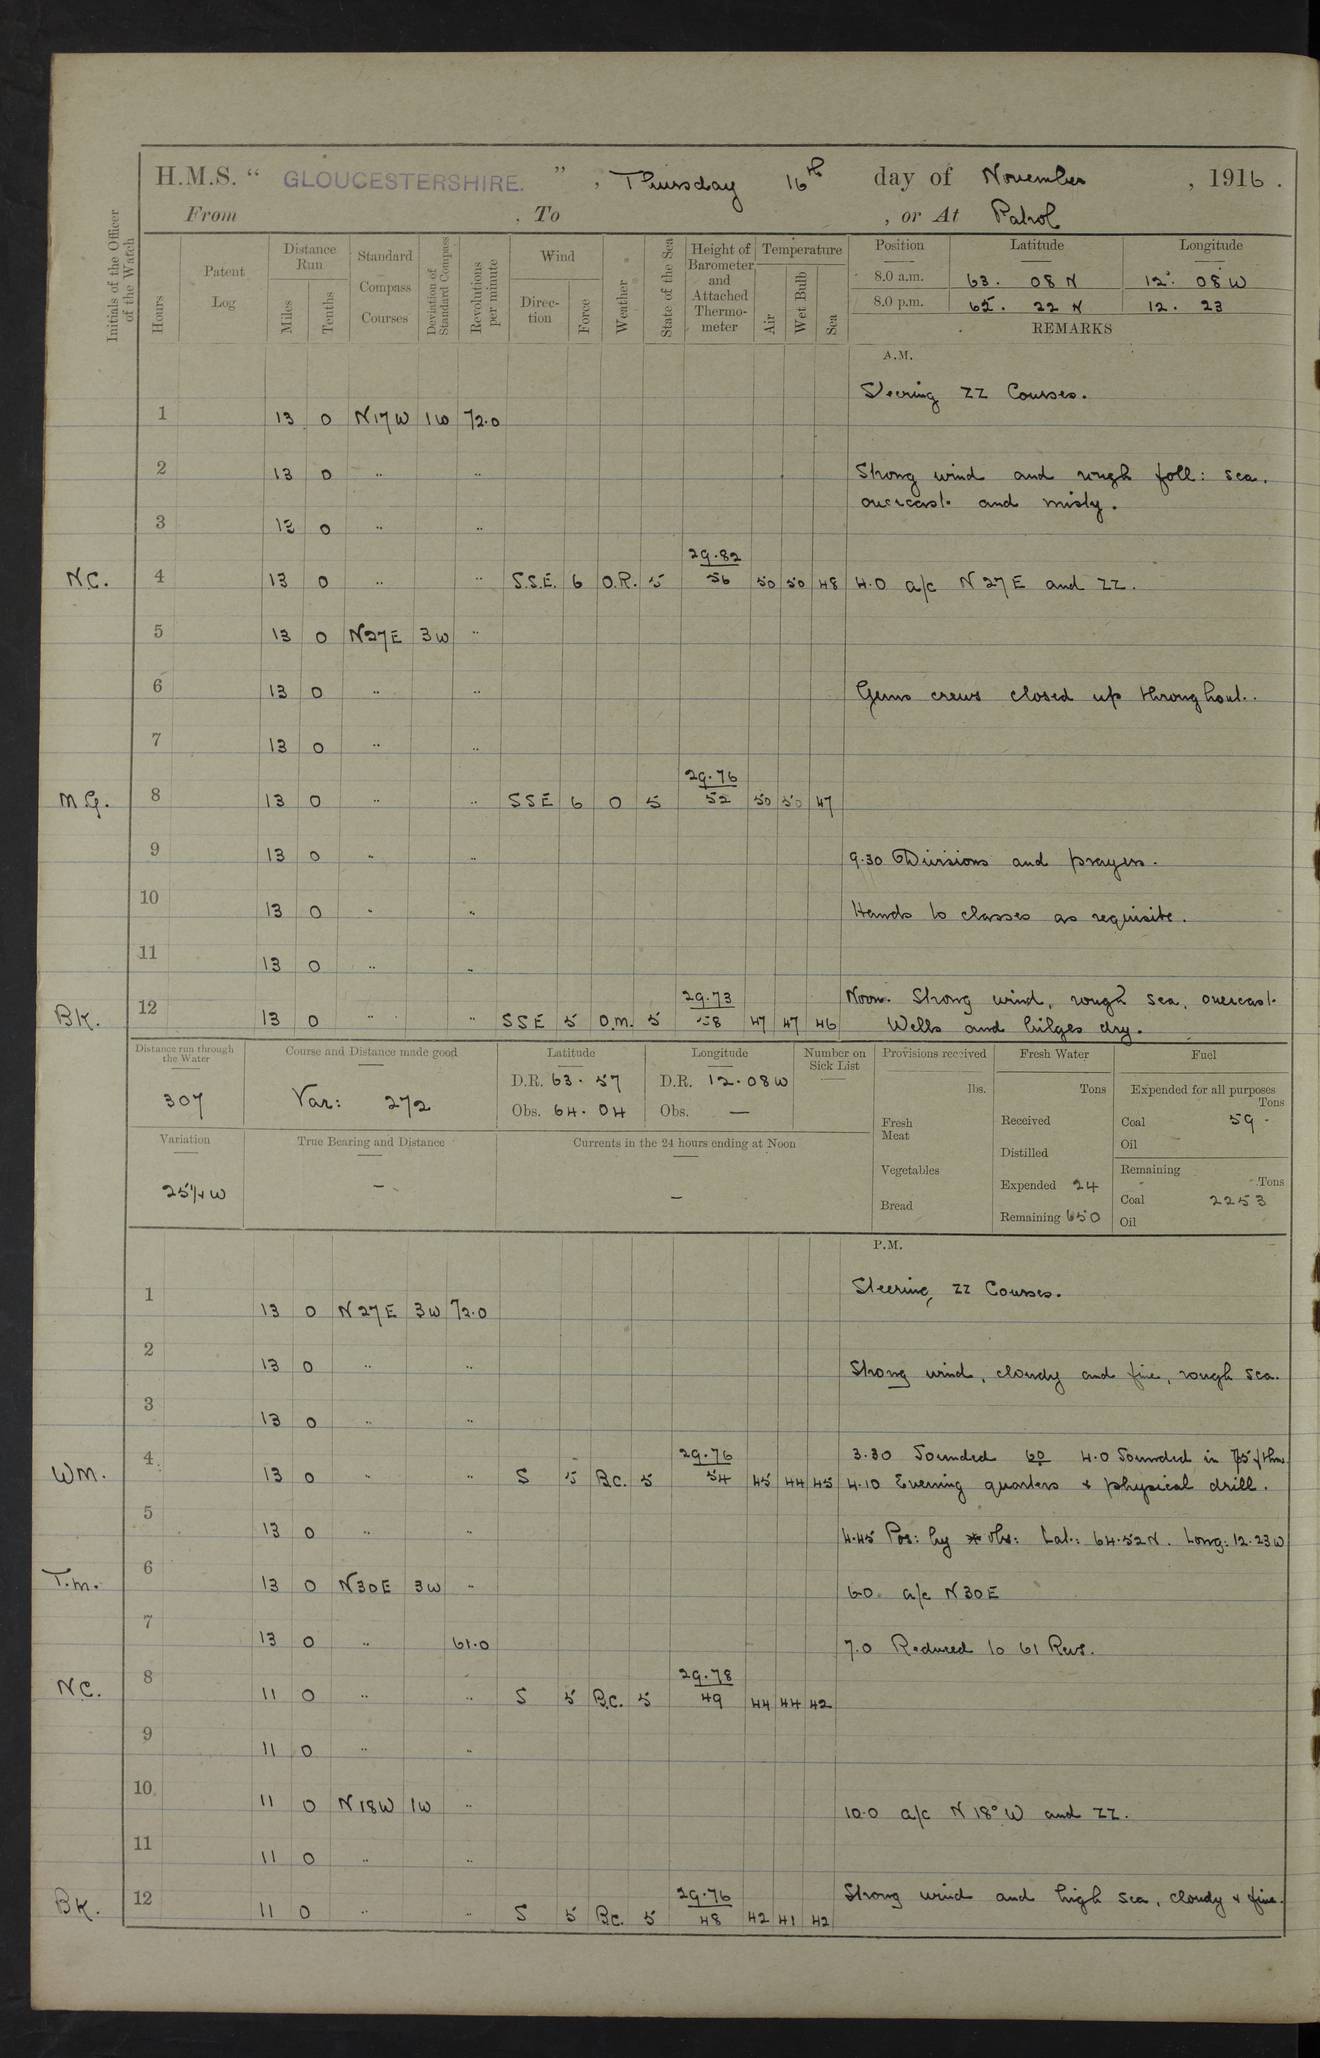 H.M.S. “ GLOUCESTERSHIRE. ” , Thursday 16th day of November , 1916 .
From . To , or At Patrol
Initials of the Officer of the Watch
Hours
Patent Log
Distance Run
Miles
Tenths
Standard Compass Courses
Deviation of Standard Compass
Revolutions per minute
Wind
Direction
Force
Weather
State of the Sea
Height of Barometer and Attached Thermometer
Temperature
Air
Wet Bulb
Sea
Position Latitude Longitude
8.0 a.m. 63. 08 N 12° 08 W
8.0 p.m. 65. 22 N 12. 23
REMARKS
A.M.
Steering ZZ Courses.
1 13 0 N17W 1W 72.0
2 13 0 .. .. Strong wind and rough foll: sea.
overcast and misty.
3 13 0 .. ..
29.82
N.C. 4 13 0 .. .. S.S.E. 6 O.R. 5 56 50 50 48 4.0 a/c N27E and ZZ.
5 13 0 N27E 3W ..
6 13 0 .. .. Guns crews closed up throughout.
7 13 0 .. ..
29.76
M.G. 8 13 0 .. .. SSE 6 O 5 52 50 50 47
9 13 0 .. .. 9.30 Divisions and prayers.
10 13 0 .. .. Hands to classes as requisite.
11 13 0 .. ..
29.73 Noon. Strong wind, rough sea, overcast.
BK. 12 13 0 .. .. SSE 5 O.m. 5 58 47 47 46 Wells and bilges dry.
Distance run through the Water
307
Course and Distance made good
Var: 272
Latitude
D.R. 63. 57
Obs. 64. 04
Longitude
D.R. 12.08W
Obs. —
Number on Sick List
Provisions received
lbs.
Fresh Meat
Vegetables
Bread
Fresh Water
Tons
Received
Distilled
Expended 24
Remaining 650
Fuel
Expended for all purposes
Tons
Coal 59
Oil
Remaining
Tons
Coal 2253
Oil
Variation
25 1/4 W
True Bearing and Distance
—
Currents in the 24 hours ending at Noon
—
P.M.
Steering ZZ Courses.
1 13 0 N27E 3W 72.0
2 13 0 .. .. Strong wind, cloudy and fine, rough sea.
3 13 0 .. ..
29.76 3.30 Sounded 60 4.0 Sounded in 75 fthms.
WM. 4 13 0 .. .. S 5 B.C. 5 54 45 44 45 4.10 Evening quarters & physical drill.
5 13 0 .. .. 4.45 Pos: by * obs: Lat.: 64.52N. Long: 12.23W
T.m. 6 13 0 N30E 3W .. 6.0. a/c N30E
7 13 0 .. 61.0 7.0 Reduced to 61 Revs.
29.78
N.C. 8 11 0 .. .. S 5 B.C. 5 49 44 44 42
9 11 0 .. ..
10 11 0 N18W 1W .. 10.0 a/c N18°W and ZZ.
11 11 0 .. ..
29.76 Strong wind and high sea, cloudy & fine.
BK. 12 11 0 .. .. S 5 B.C. 5 48 42 41 42